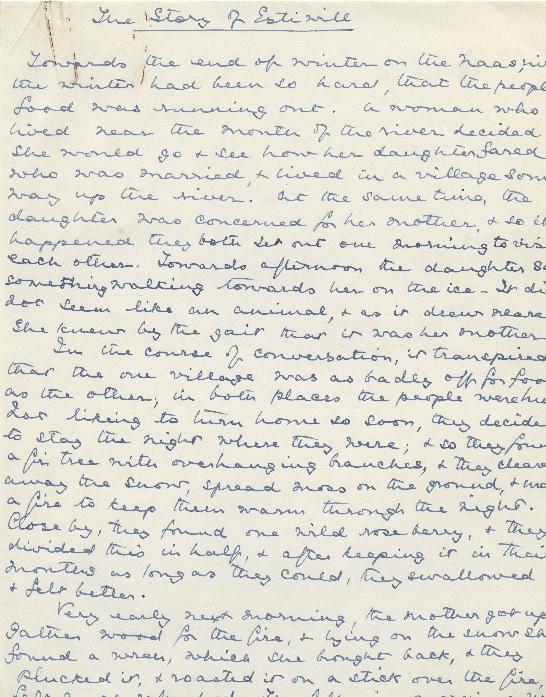 The Story of Estiwill
Towards the end of winter on the Naas riv
the winter had been so hard, that the peopl
food was running out. A woman who
lived near the mouth of the river decided
She would go & see how her daughter fared
who was married, & lived in a village som
way up the river. At the same time, the
daughter was concerned for her mother, & so it
happened they both set out one morning to vis
each other. Towards afternoon the daughter sa
something walking towards her on the ice - It di
not seem like an animal, & as it drew neare
She knew by the gait that it was her mother
In the course of conversation, it transpired
that the one village was as badly off for foo
as the other; in both places the people were hu
Not liking to turn home so soon, they decide
to stay the night where they were; & so they foun
a fir tree with overhanging branches, & they cleare
away the snow, spread moss on the ground, & ma
a fire to keep them warm through the night.
Close by, they found one wild rose berry, & they
divided this in half, & after keeping it in their
mouths as long as they could, they swallowed
& felt better.
Very early next morning, the mother got up
gather wood for the fire, & lying on the snow sh
found a wren, which she bought back, & they
plucked it, & roasted it on a stick over the fire,